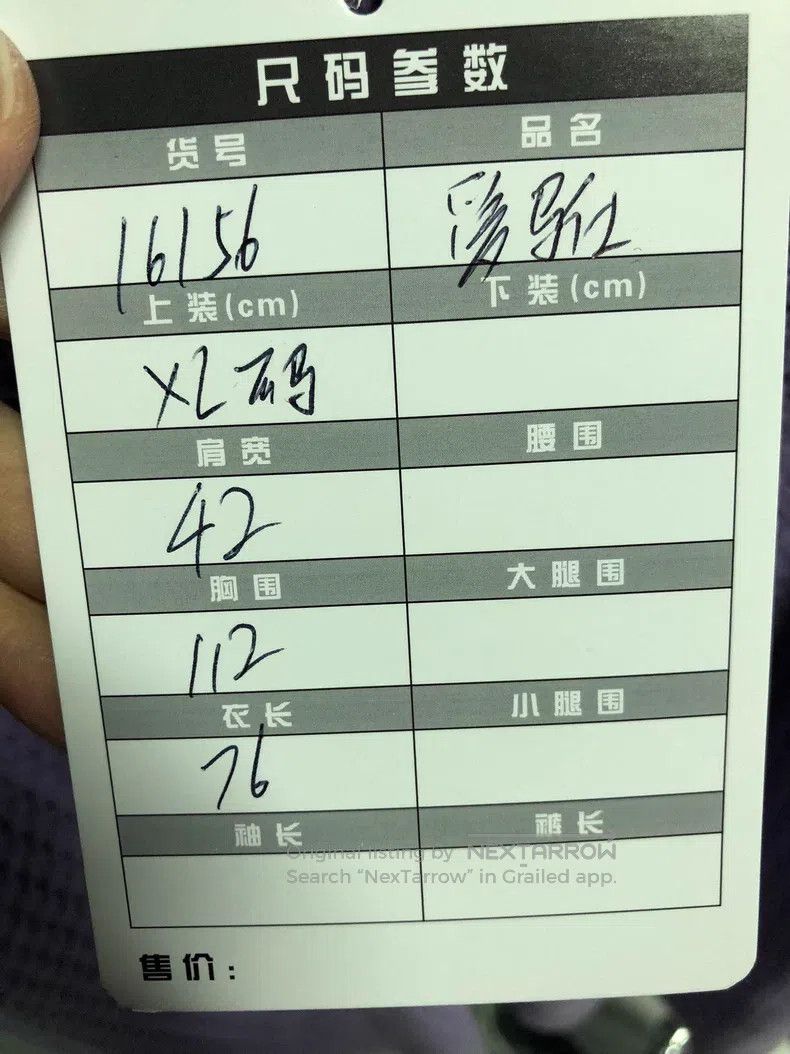 尺码参数
货号 品名
16156
上装(cm) 下装(cm)
XL码
肩宽 腰围
42
胸围 大腿围
112
衣长 小腿围
76
袖长 裤长
Original listing by NEXTARROW
Search “NexTarrow” in Grailed app.
售价: